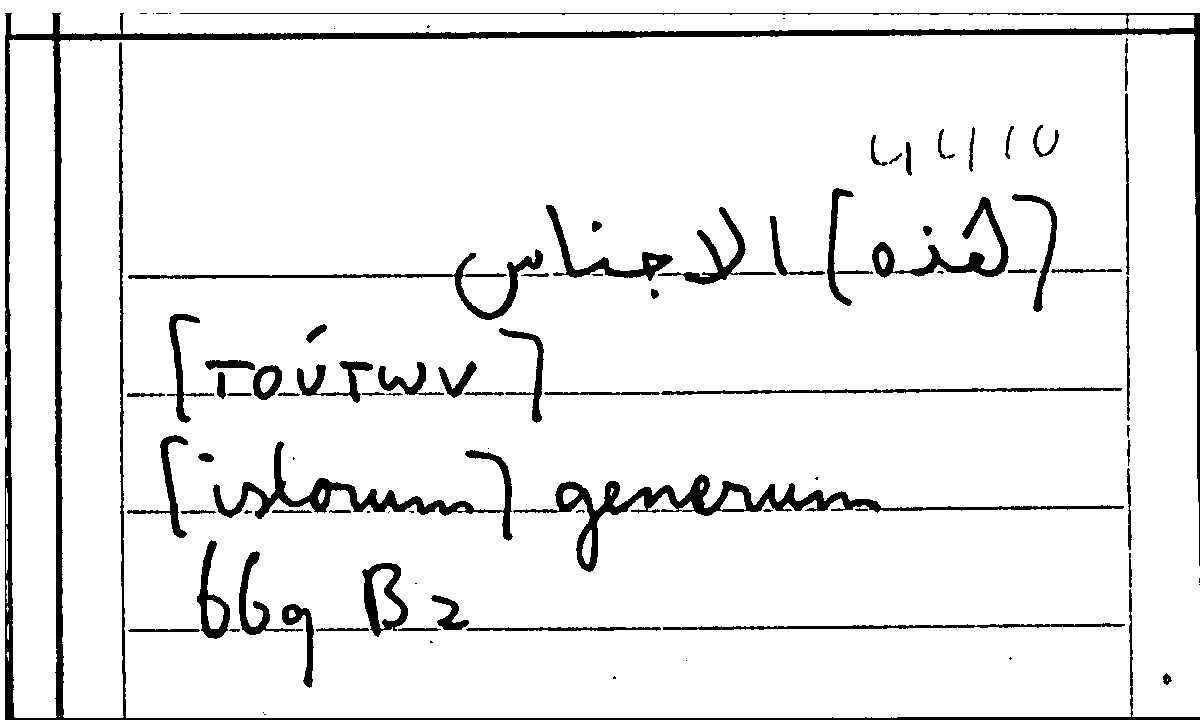 441,10
[هذه] الاجناس
[τούτων]
[istorum] generum
669 B 2